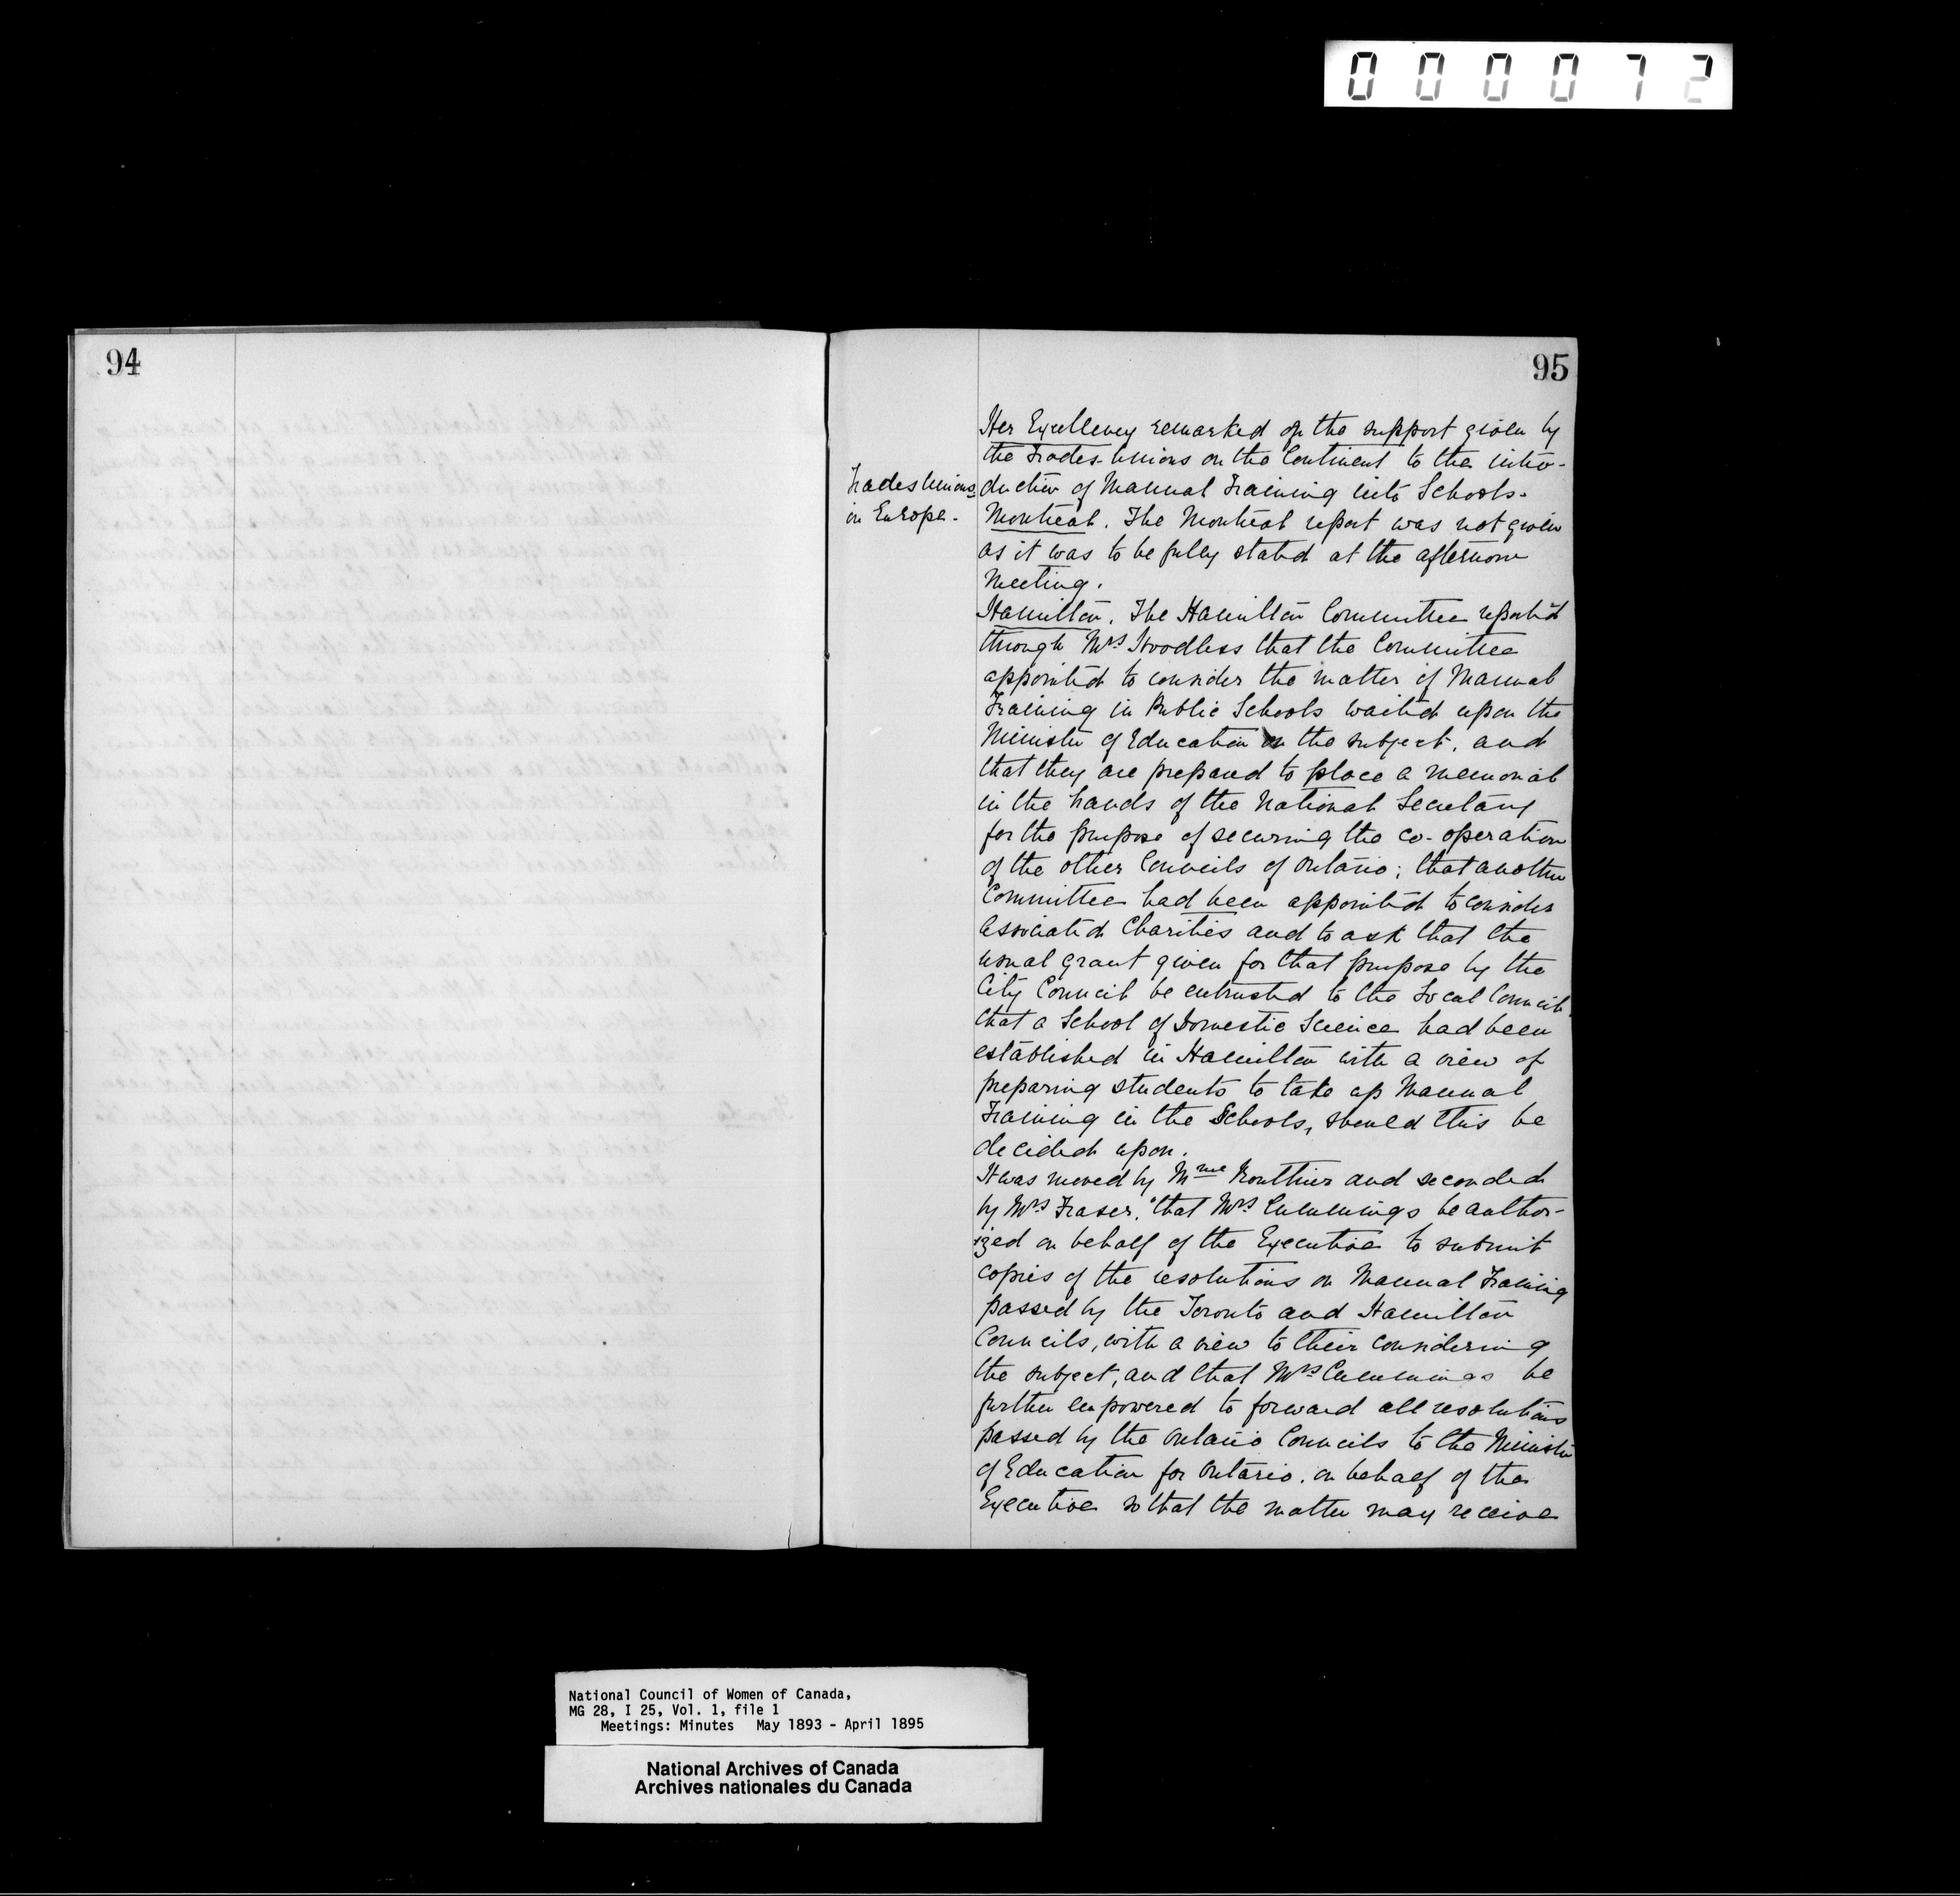 000072
94
95
Her Excellency remarked on the support given by
the Trades-Unions on the Continent to the intro-
Trades Unions
in Europe.
duction of Manual Training into Schools.
Montreal. The Montreal report was not given
as it was to be fully stated at the afternoon
Meeting.
Hamilton. The Hamilton Committee reported
through Mrs. Hoodless that the Committee
appointed to consider the matter of Manual
Training in Public Schools waited upon the
Minister of Education on the subject, and
that they are prepared to place a memorial
in the hands of the National Secretary
for the purpose of securing the co-operation
of the other Councils of Ontario; that another
Committee had been appointed to consider
Associated Charities and to ask that the
usual grant given for that purpose by the
City Council be entrusted to the Local Council.
that a School of Domestic Science had been
established in Hamilton with a view of
preparing students to take up Manual
Training in the Schools, should this be
decided upon.
It was moved by Mme Routhier and seconded
by Mrs Fraser, "that Mrs Cummings be author-
ized on behalf of the Executive to submit
copies of the resolutions on Manual Training
passed by the Toronto and Hamilton
Councils, with a view to their considering
the subject, and that Mrs Cummings be
further empowered to forward all resolutions
passed by the Ontario Councils to the Minister
of Education for Ontario, on behalf of the
Executive so that the matter may receive
National Council of Women of Canada,
MG 28, I 25, Vol. 1, file 1
Meetings: Minutes May 1893 - April 1895
National Archives of Canada
Archives nationales du Canada